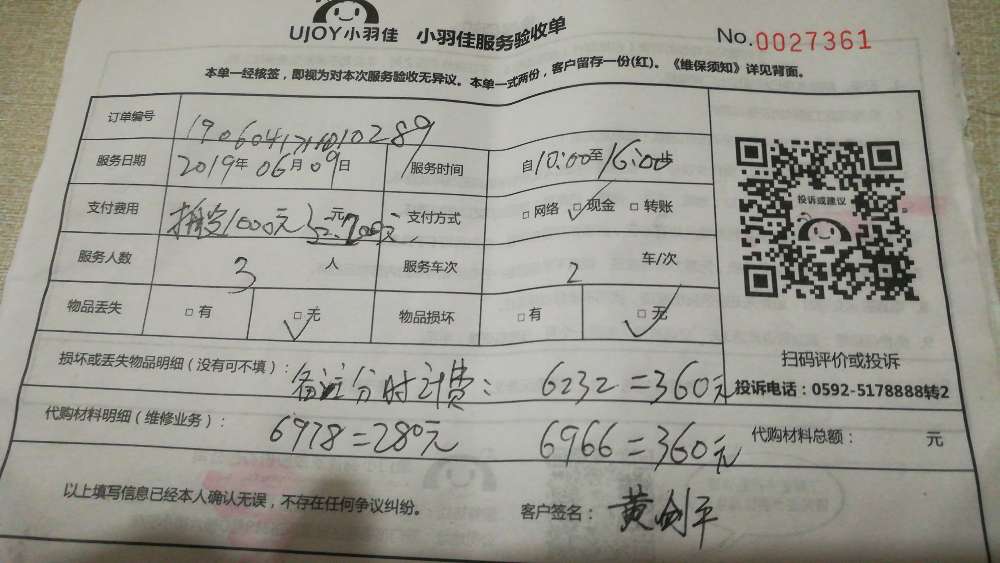 UJOY小羽佳 小羽佳服务验收单 No.0027361
本单一经核签，即视为对本次服务验收无异议。本单一式两份，客户留存一份(红)。《维保须知》详见背面。
订单编号
服务日期 2019年06月09日 服务时间 自10:00至16:00
支付费用 1000元 元 支付方式 □网络 □现金 □转账
服务人数 3人 服务车次 2 车/次
物品丢失 □有 □无 物品损坏 □有 □无
投诉或建议
扫码评价或投诉
投诉电话：0592-5178888转2
损坏或丢失物品明细（没有可不填）：备注分时计费：6232=360元
代购材料明细（维修业务）：6978=280元 6966=360元 代购材料总额： 元
以上填写信息已经本人确认无误，不存在任何争议纠纷。 客户签名：黄剑平